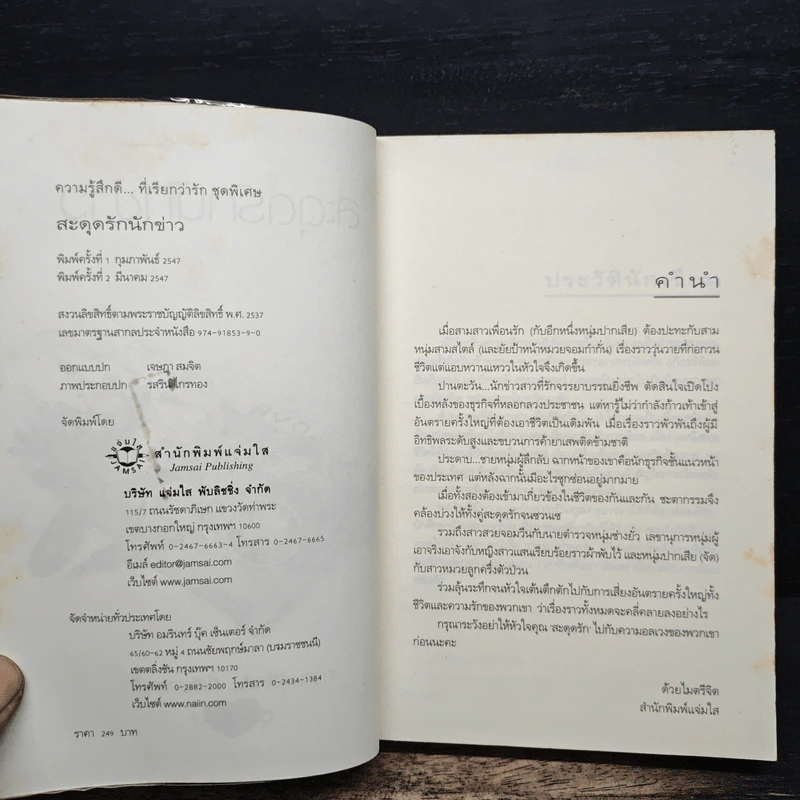 ความรู้สึกดี... ที่เรียกว่ารัก ชุดพิเศษ
สะดุดรักนักข่าว
พิมพ์ครั้งที่ 1 กุมภาพันธ์ 2547
พิมพ์ครั้งที่ 2 มีนาคม 2547
สงวนลิขสิทธิ์ตามพระราชบัญญัติลิขสิทธิ์ พ.ศ. 2537
เลขมาตรฐานสากลประจำหนังสือ 974-91853-9-0
ออกแบบปก เจษฎา สมจิต
ภาพประกอบปก รสริน ไกรทอง
จัดพิมพ์โดย
แจ่มใส
JAMSAI
สำนักพิมพ์แจ่มใส
Jamsai Publishing
บริษัท แจ่มใส พับลิชชิ่ง จำกัด
115/7 ถนนรัชดาภิเษก แขวงวัดท่าพระ
เขตบางกอกใหญ่ กรุงเทพฯ 10600
โทรศัพท์ 0-2467-6663-4 โทรสาร 0-2467-6665
อีเมล์ editor@jamsai.com
เว็บไซต์ www.jamsai.com
จัดจำหน่ายทั่วประเทศโดย
บริษัท อมรินทร์ บุ๊ค เซ็นเตอร์ จำกัด
65/60-62 หมู่ 4 ถนนชัยพฤกษ์มาลา (บรมราชชนนี)
เขตตลิ่งชัน กรุงเทพฯ 10170
โทรศัพท์ 0-2882-2000 โทรสาร 0-2434-1384
เว็บไซต์ www.naiin.com
ราคา 249 บาท
คำนำ
เมื่อสามสาวเพื่อนรัก (กับอีกหนึ่งหนุ่มปากเสีย) ต้องปะทะกับสาม
หนุ่มสามสไตล์ (และยัยป้าหน้าหมวยจอมกำกั่น) เรื่องราววุ่นวายที่ก่อกวน
ชีวิตแต่แอบหวานแหววในหัวใจจึงเกิดขึ้น
ปานตะวัน...นักข่าวสาวที่รักจรรยาบรรณยิ่งชีพ ตัดสินใจเปิดโปง
เบื้องหลังของธุรกิจที่หลอกลวงประชาชน แต่หารู้ไม่ว่ากำลังก้าวเท้าเข้าสู่
อันตรายครั้งใหญ่ที่ต้องเอาชีวิตเป็นเดิมพัน เมื่อเรื่องราวพัวพันถึงผู้มี
อิทธิพลระดับสูงและขบวนการค้ายาเสพติดข้ามชาติ
ประดาบ...ชายหนุ่มผู้ลึกลับ ฉากหน้าของเขาคือนักธุรกิจชั้นแนวหน้า
ของประเทศ แต่หลังฉากนั้นมีอะไรซุกซ่อนอยู่มากมาย
เมื่อทั้งสองต้องเข้ามาเกี่ยวข้องในชีวิตของกันและกัน ชะตากรรมจึง
คล้องบ่วงให้ทั้งคู่สะดุดรักจนซวนเซ
รวมถึงสาวสวยจอมวีนกับนายตำรวจหนุ่มช่างยั่ว เลขานุการหนุ่มผู้
เอาจริงเอาจังกับหญิงสาวแสนเรียบร้อยราวผ้าพับไว้ และหนุ่มปากเสีย (จัด)
กับสาวหมวยลูกครึ่งตัวป่วน
ร่วมลุ้นระทึกจนหัวใจเต้นตึกตักไปกับการเสี่ยงอันตรายครั้งใหญ่ทั้ง
ชีวิตและความรักของพวกเขา ว่าเรื่องราวทั้งหมดจะคลี่คลายลงอย่างไร
กรุณาระวังอย่าให้หัวใจคุณ 'สะดุดรัก' ไปกับความอลเวงของพวกเขา
ก่อนนะคะ
ด้วยไมตรีจิต
สำนักพิมพ์แจ่มใส